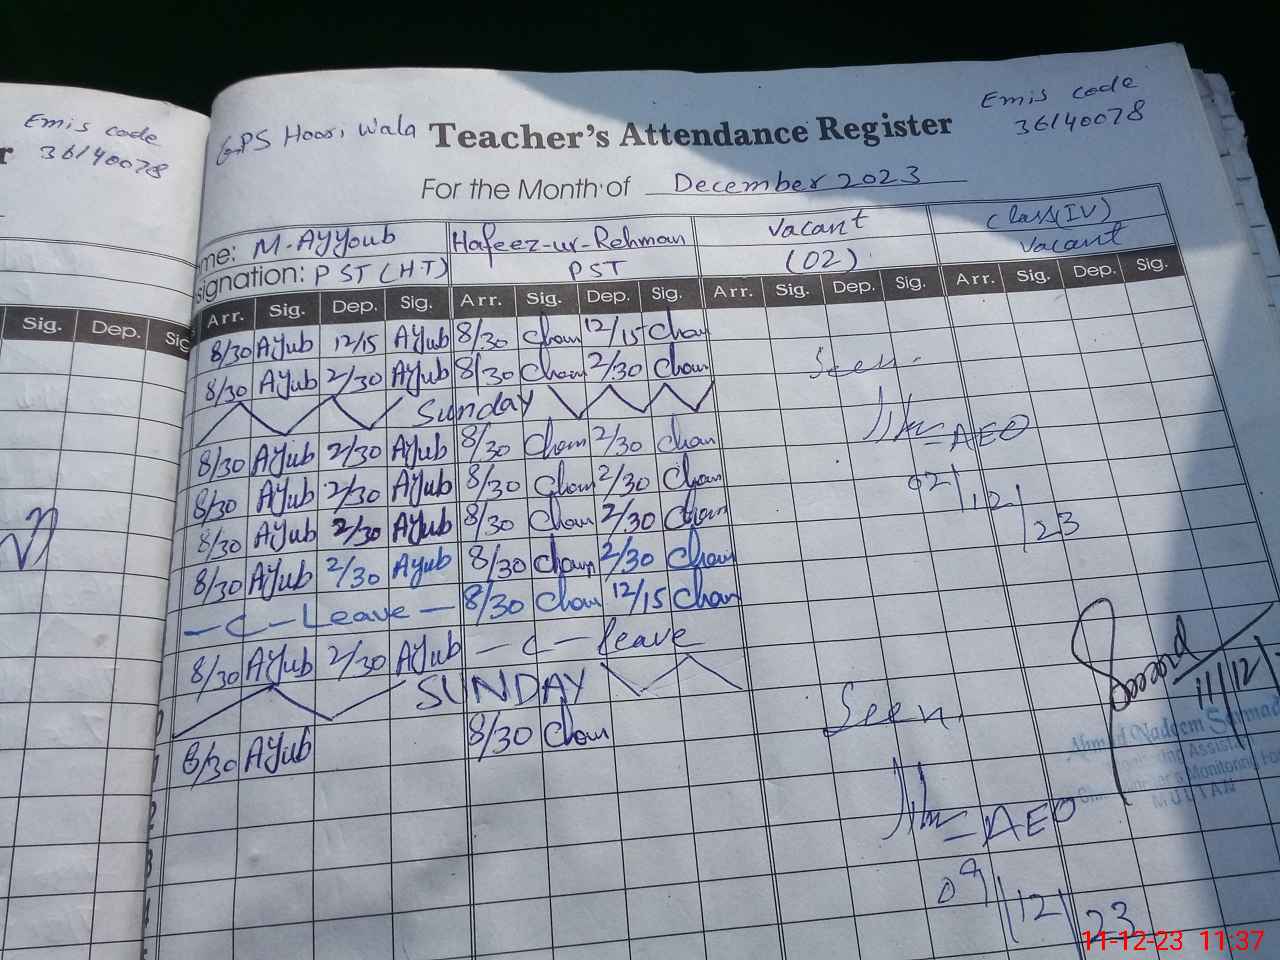 Emis code
36140078
Sig. Dep. Sig
Emis code
36140078
GPS Hoori Wala Teacher's Attendance Register
For the Month of December 2023
me: M. Ayyoub Hafeez-ur-Rehman Vacant Class(IV)
signation: PST (H.T) PST (02) Vacant
Arr. Sig. Dep. Sig. Arr. Sig. Dep. Sig. Arr. Sig. Dep. Sig. Arr. Sig. Dep. Sig.
8/30 AYub 12/15 AYub 8/30 12/15
8/30 AYub 2/30 AYub 8/30 2/30 Seen
Sunday
8/30 AYub 2/30 AYub 8/30 2/30 AEO
8/30 AYub 2/30 AYub 8/30 2/30 02/12/23
8/30 AYub 2/30 AYub 8/30 2/30
8/30 AYub 2/30 Ayub 8/30 2/30
- C - Leave - 8/30 12/15
8/30 AYub 2/30 AYub - C - leave
SUNDAY Seen
8/30 AYub 8/30
11/12/
Ahmed Nadeem Sarmad
Monitoring Assistant
Chief Minister's Monitoring Fo
MULTAN
AEO
09/12/23
2
3
4
11-12-23 11:37